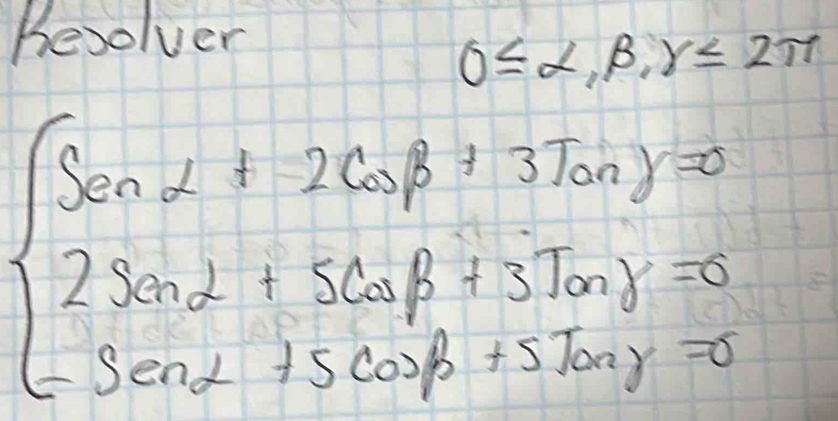 Resolver
0 ≤ α, β, γ ≤ 2π
Sen α + 2 Cos β + 3 Tan γ = 0
2 Sen α + 5 Cos β + 3 Tan γ = 0
- Sen α + 5 Cos β + 5 Tan γ = 0